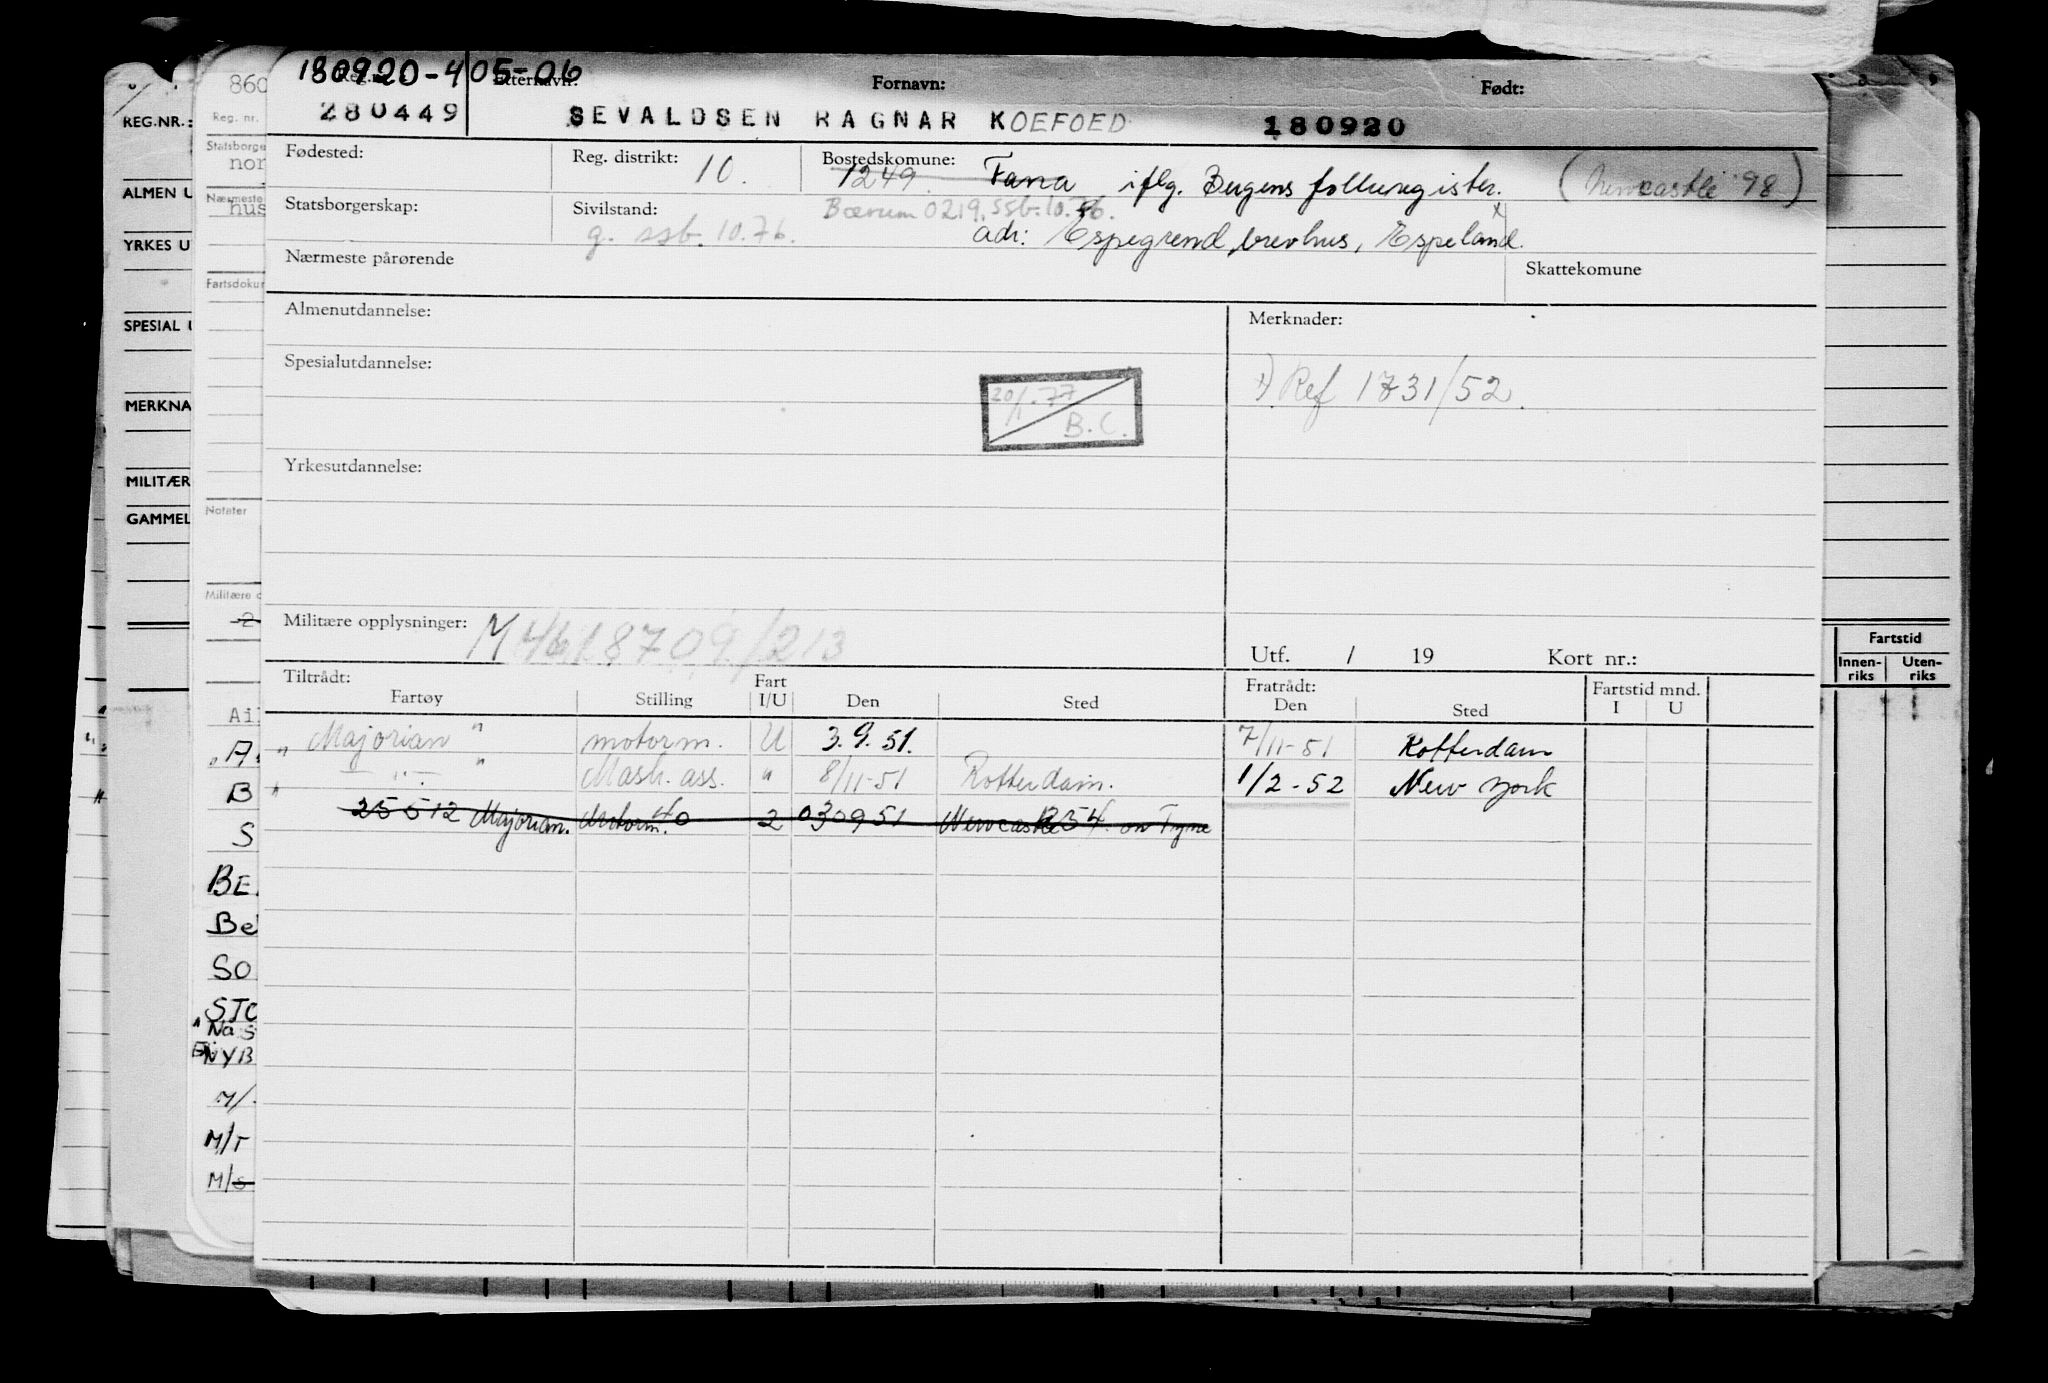 180920-405-06
Reg. nr. Etternavn: Fornavn: Født:
280449 SEVALDSEN RAGNAR KOEFOED 180920
Fødested: Reg. distrikt: 10. Bostedskomune: 1249. Fana iflg. Bergens folkeregister. (Newcastle 98)
Statsborgerskap: Sivilstand: Bærum 0219. ssb. 10.76.
g. ssb. 10.76. adr: Espegrend, brevhus, Espeland.
Nærmeste pårørende Skattekomune
Almenutdannelse: Merknader:
Spesialutdannelse:
20/1-77 B.C.
Ref 1731/52.
Yrkesutdannelse:
Militære opplysninger: M4618709/213
Utf. / 19 Kort nr.:
Tiltrådt: Fratrådt: Fartstid mnd.
Fartøy Stilling Fart I/U Den Sted Den Sted I U
" Majorian " motorm. U 3.9.51. 7/11-51 Rotterdam
" — " — " Mask. ass. " 8/11-51 Rotterdam. 1/2-52 New York
25512 Majorian. Motorm. 40 2 030951 Newcastle on Tyne
860
REG.NR.:
Reg. nr.
Statsborge
nor
ALMEN U
Nærmeste
hus
YRKES U
Fartsdokum
SPESIAL U
MERKNA
MILITÆR
GAMMEL
Notater
Militære o
-2
Ail
"A
B
S
BE.
Be
SO
STO
NYB
M/.
M/T
M/S
Fartstid
Innen-riks Uten-riks